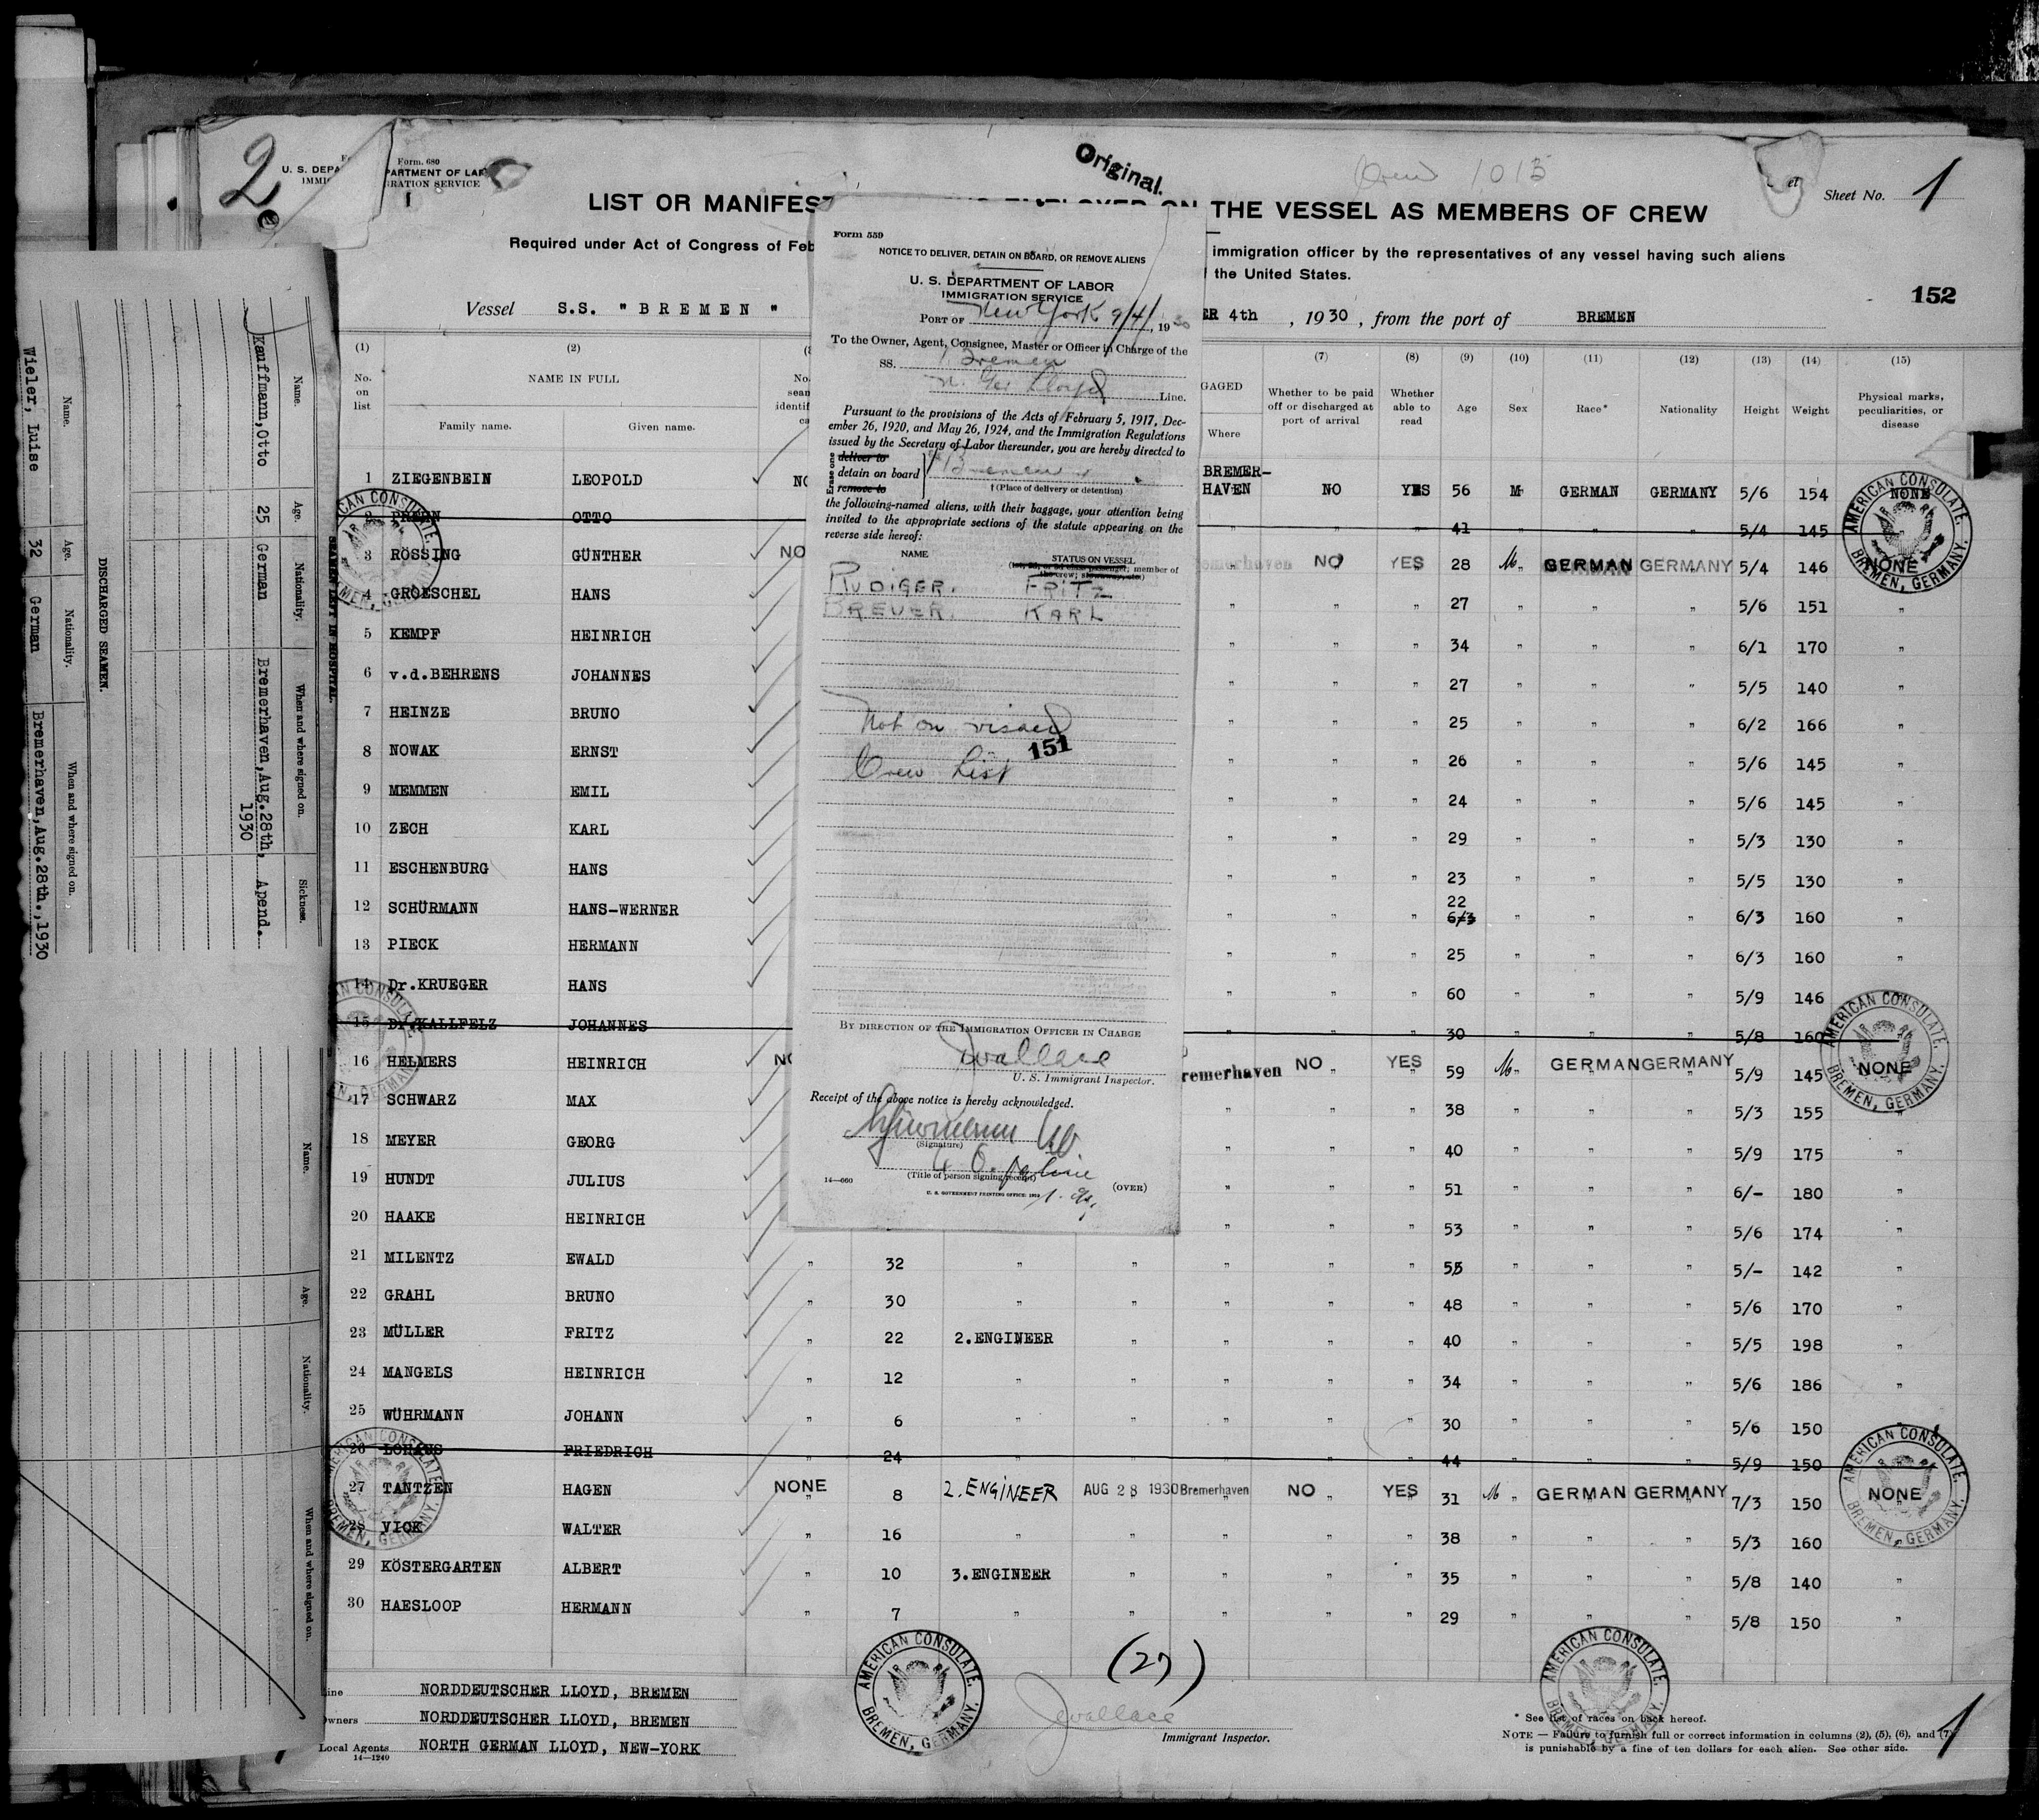 2
Form. 680
U. S. DEPA
PARTMENT OF LAB
IMMIG
RATION SERVICE
Original.
Crew 1013
Sheet No. 1
LIST OR MANIFEST
THE VESSEL AS MEMBERS OF CREW
Required under Act of Congress of Feb
immigration officer by the representatives of any vessel having such aliens
the United States.
152
Vessel S.S. "BREMEN"
ER 4th, 1930, from the port of BREMEN
(1) (2) (7) (8) (9) (10) (11) (12) (13) (14) (15)
No. on list
NAME IN FULL
Family name. Given name.
GAGED
Where
Whether to be paid off or discharged at port of arrival
Whether able to read
Age
Sex
Race*
Nationality
Height
Weight
Physical marks, peculiarities, or disease
1 ZIEGENBEIN LEOPOLD BREMER-HAVEN NO YES 56 M GERMAN GERMANY 5/6 154 NONE
2 OTTO " " " 41 " " " 5/4 145
3 RÖSSING GÜNTHER NO Bremerhaven NO YES 28 M " GERMAN GERMANY 5/4 146 NONE
4 GROESCHEL HANS " " " 27 " " " 5/6 151 "
5 KEMPF HEINRICH " " " 34 " " " 6/1 170 "
6 v.d.BEHRENS JOHANNES " " " 27 " " " 5/5 140 "
7 HEINZE BRUNO " " " 25 " " " 6/2 166 "
8 NOWAK ERNST " " " 26 " " " 5/6 145 "
9 MEMMEN EMIL " " " 24 " " " 5/6 145 "
10 ZECH KARL " " " 29 " " " 5/3 130 "
11 ESCHENBURG HANS " " " 23 " " " 5/5 130 "
12 SCHÜRMANN HANS-WERNER " " " 22 6/3 " " " 6/3 160 "
13 PIECK HERMANN " " " 25 " " " 6/3 160 "
14 Dr.KRUEGER HANS " " " 60 " " " 5/9 146 "
15 Dr.KALLFELZ JOHANNES " " " 30 " " " 5/8 160
16 HELMERS HEINRICH NO Bremerhaven NO YES 59 M " GERMAN GERMANY 5/9 145 NONE
17 SCHWARZ MAX " " " 38 " " " 5/3 155 "
18 MEYER GEORG " " " 40 " " " 5/9 175 "
19 HUNDT JULIUS " " " 51 " " " 6/- 180 "
20 HAAKE HEINRICH " " " 53 " " " 5/6 174 "
21 MILENTZ EWALD " 32 " " " " " 55 " " " 5/- 142 "
22 GRAHL BRUNO " 30 " " " " " 48 " " " 5/6 170 "
23 MÜLLER FRITZ " 22 2.ENGINEER " " " " 40 " " " 5/5 198 "
24 MANGELS HEINRICH " 12 " " " " " 34 " " " 5/6 186 "
25 WÜHRMANN JOHANN " 6 " " " " " 30 " " " 5/6 150 "
26 LOHAUS FRIEDRICH " 24 " " " " " 44 " " " 5/9 150
27 TANTZEN HAGEN NONE 8 2.ENGINEER AUG 28 1930 Bremerhaven NO YES 31 M " GERMAN GERMANY 7/3 150 NONE
28 VICK WALTER " 16 " " " " " 38 " " " 5/3 160 "
29 KÖSTERGARTEN ALBERT " 10 3.ENGINEER " " " " 35 " " " 5/8 140 "
30 HAESLOOP HERMANN " 7 " " " " " 29 " " " 5/8 150 "
(27)
Line NORDDEUTSCHER LLOYD, BREMEN
Owners NORDDEUTSCHER LLOYD, BREMEN
Local Agents NORTH GERMAN LLOYD, NEW-YORK
14—1240
JWallace
Immigrant Inspector.
* See list of races on back hereof.
NOTE — Failure to furnish full or correct information in columns (2), (5), (6), and (7)
is punishable by a fine of ten dollars for each alien. See other side.
1
AMERICAN CONSULATE.
BREMEN, GERMANY.
Form 559
NOTICE TO DELIVER, DETAIN ON BOARD, OR REMOVE ALIENS
U. S. DEPARTMENT OF LABOR
IMMIGRATION SERVICE
PORT OF New York 9/4/, 1930
To the Owner, Agent, Consignee, Master or Officer in Charge of the
SS. Bremen
N. Ger Lloyd Line.
Pursuant to the provisions of the Acts of February 5, 1917, Dec-
ember 26, 1920, and May 26, 1924, and the Immigration Regulations
issued by the Secretary of Labor thereunder, you are hereby directed to
Erase one
deliver to
detain on board Bremen
remove to
†(Place of delivery or detention)
the following-named aliens, with their baggage, your attention being
invited to the appropriate sections of the statute appearing on the
reverse side hereof:
NAME STATUS ON VESSEL
(1st, 2d, or 3d class passenger, member of
the crew, stowaway, etc.)
RUDIGER. FRITZ
BREUER. KARL
Not on visaed
151
Crew List
BY DIRECTION OF THE IMMIGRATION OFFICER IN CHARGE
JWallace
U. S. Immigrant Inspector.
Receipt of the above notice is hereby acknowledged.
(Signature)
(Title of person signing receipt)
14—660
U. S. GOVERNMENT PRINTING OFFICE
(OVER)
SEAMEN LEFT IN HOSPITAL.
Name. Age. Nationality. When and where signed on. Sickness.
Kauffmann,Otto 25 German Bremerhaven,Aug.28th, 1930 Apend.
DISCHARGED SEAMEN.
Name. Age. Nationality. When and where signed on.
Wieler, Luise 32 German Bremerhaven,Aug.28th.,1930
Name. Age. Nationality. When and where signed on.